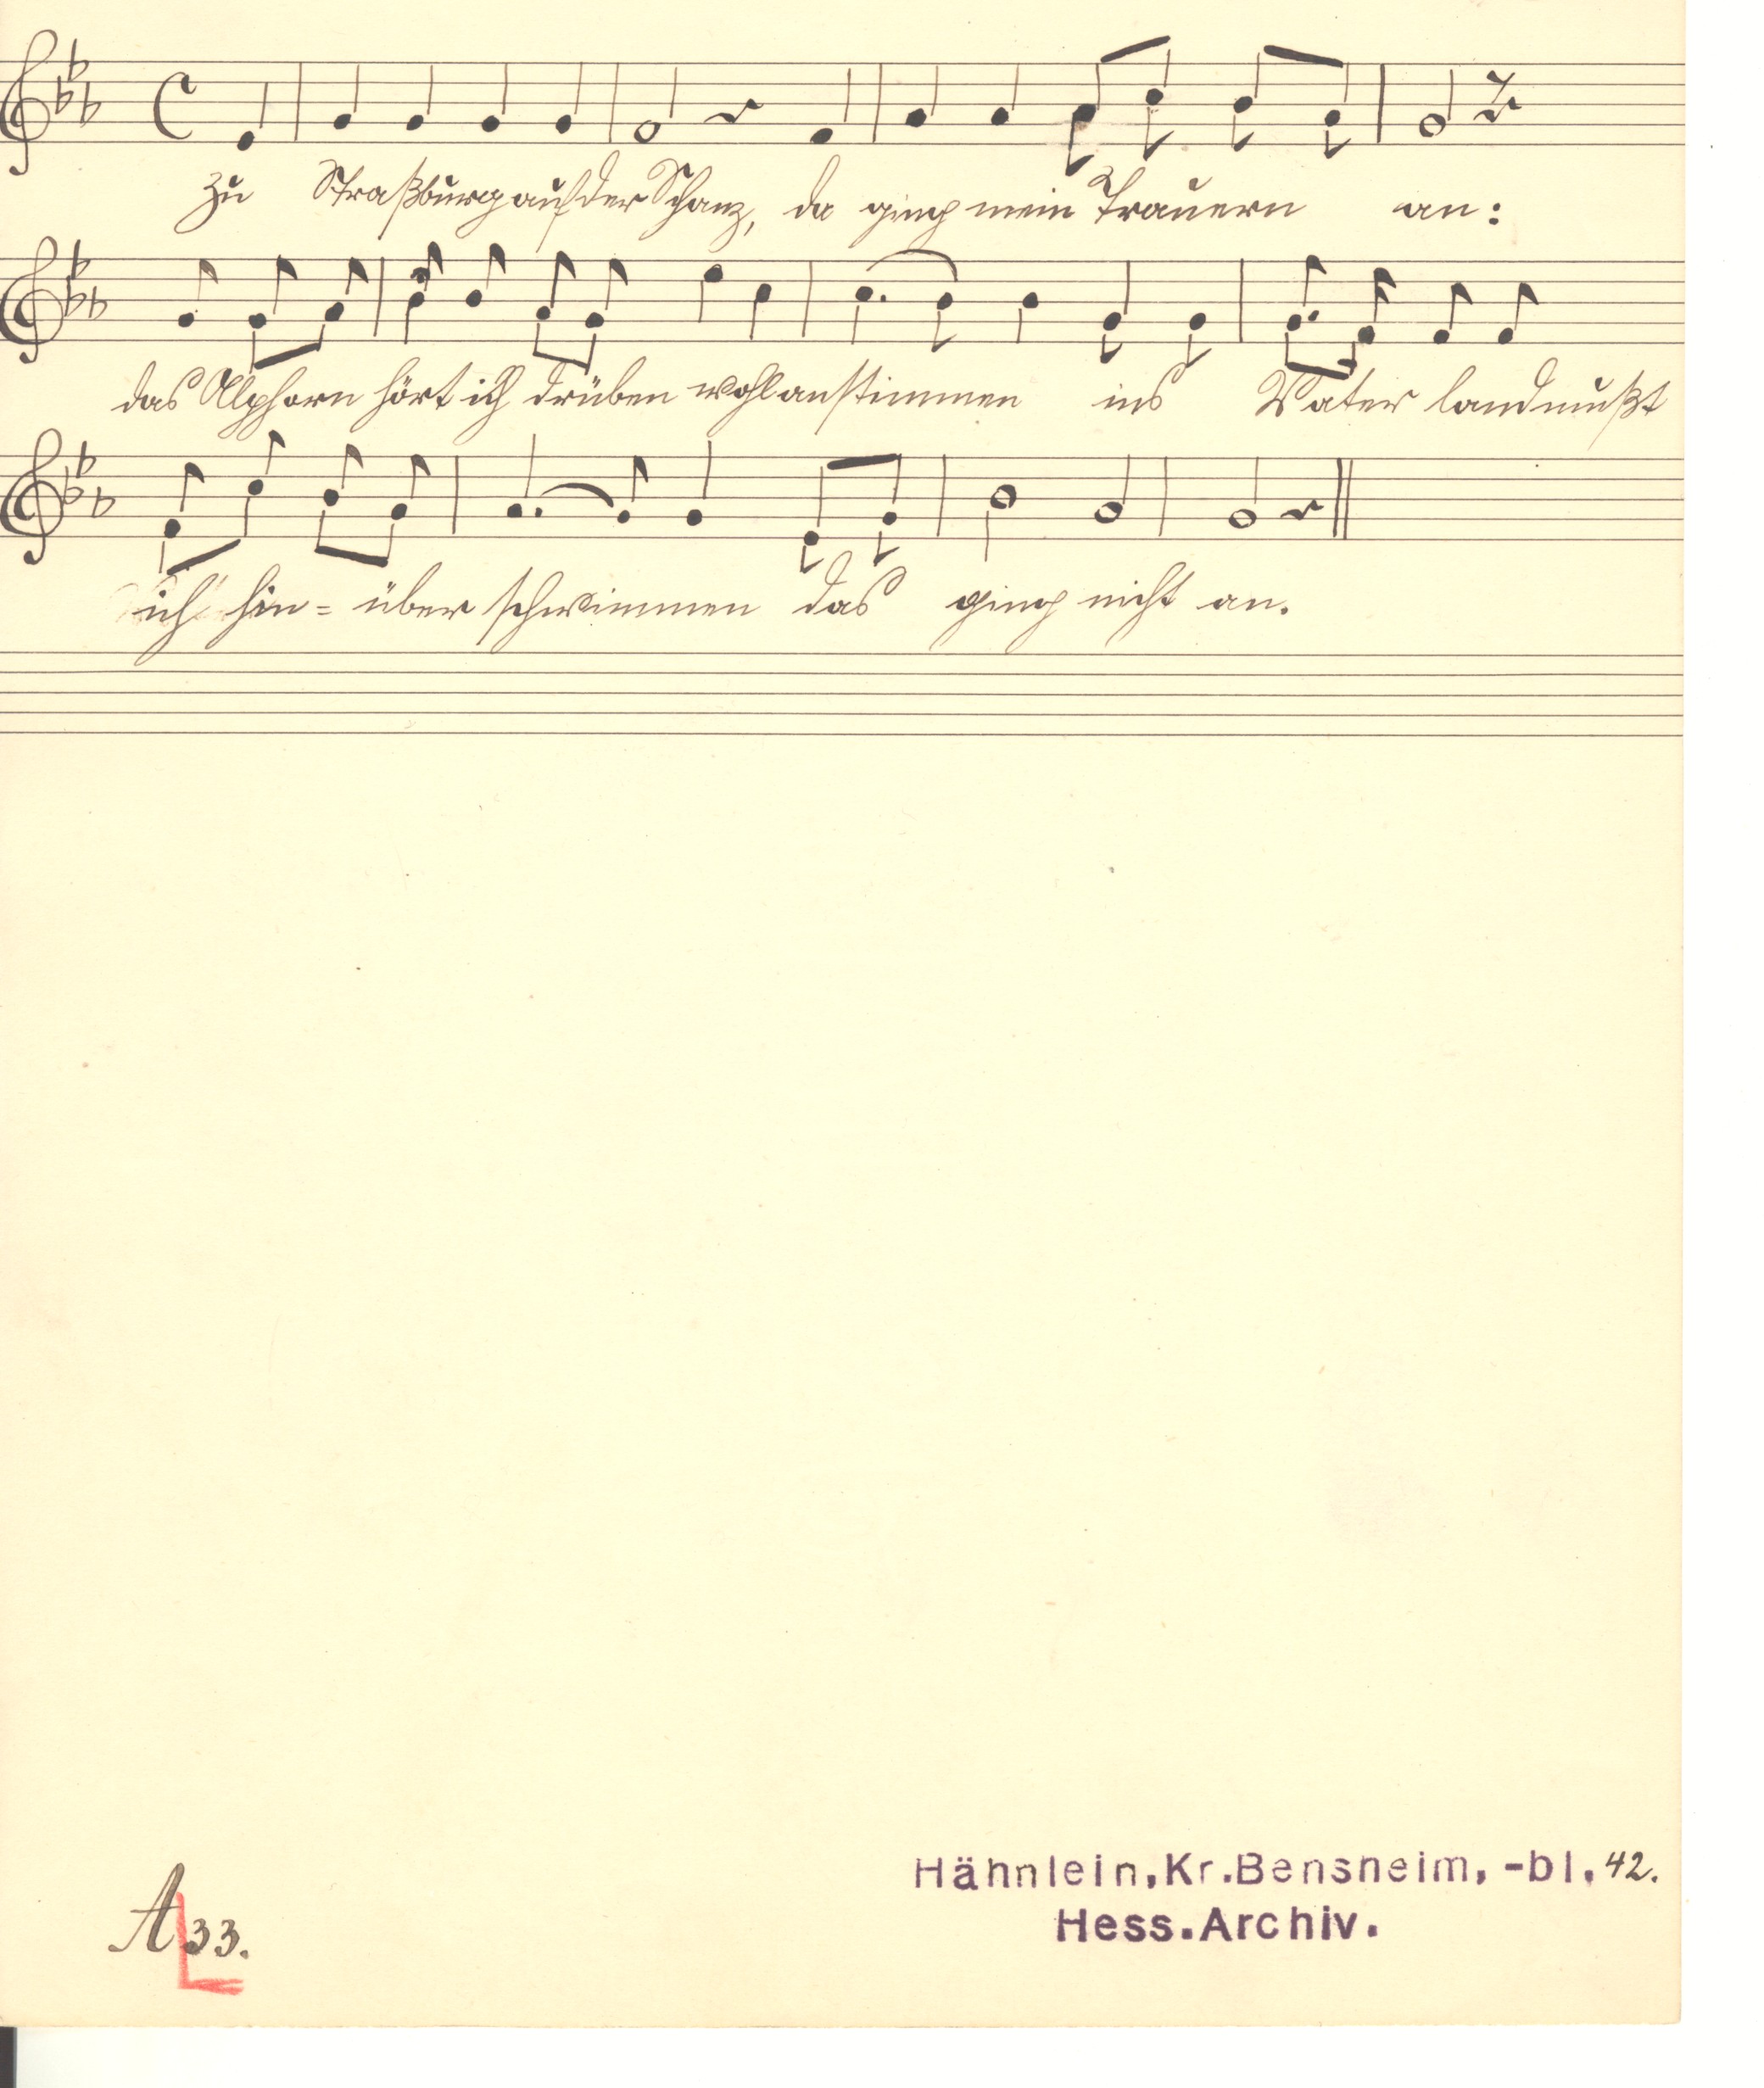 Zu Straßburg auf der Schanz, da ging mein Trauern an:
das Alphorn hört ich drüben wohl anstimmen ins Vater land mußt
ich hin= über schwimmen das ging nicht an.
Hähnlein,Kr.Bensheim, -bl. 42.
A 33.
Hess.Archiv.